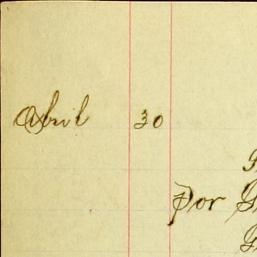 Abril 30
Por